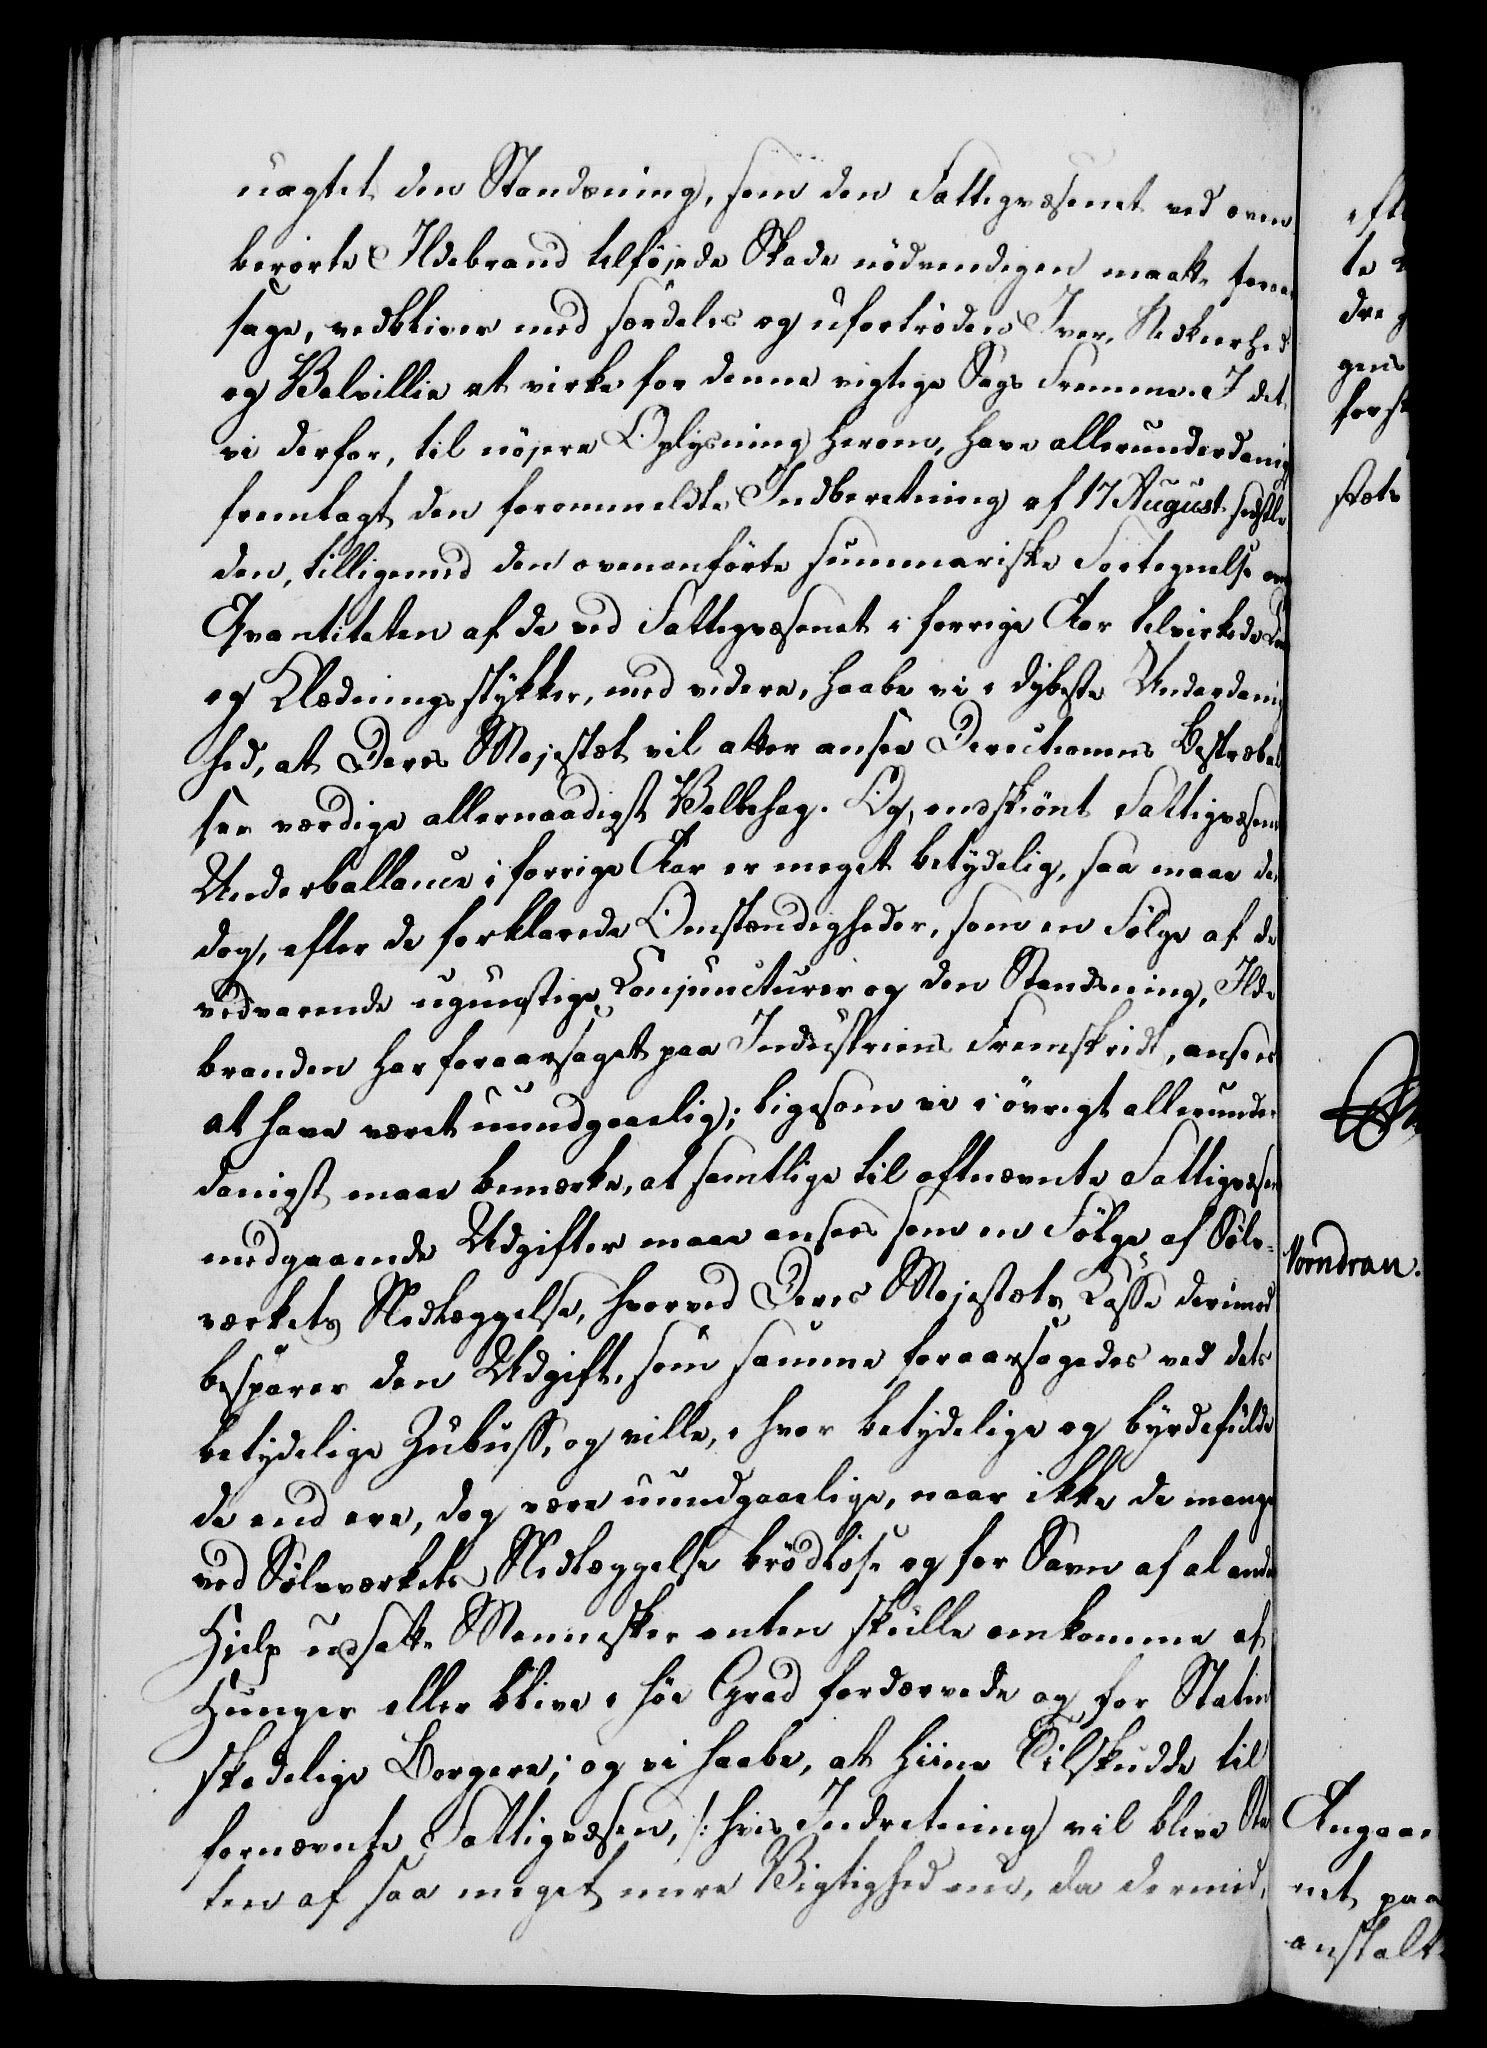 uagtet den Standsning, som den Fattigvæsenet ved oven
berörte Ildebrand tilföjede Skade nödvendigen maatte foraar
sage, vedbliver med særdeles og ufortröden Iver, Nidkierhed
og Velvillie at virke for denne vigtige Sags Fremme. I det
vi derfor, til nöjere Oplysning herom, have allerunderdanigst
fremlagt den forommeldte Indberetning af 17 August sidstle
den, tilligemed den ovenanförte summariske Fortegnelse over
Qvantiteten af de ved Fattigvæsenet i forrige Aar tilvirkede
og Klædningsstykker, med videre, haabe vi i dybeste Underdanig
hed, at Deres Majestæt vil atter ansee Directionens Bestræbel
ser værdige allernaadigst Velbehag. Og, endskiönt Fattigvæsenets
Underballance i forrige Aar er meget betydelig, saa maae den
dog, efter de forklarede Omstændigheder, som en Fölge af de
vedvarende ugunstige Conjuncturer og den Standsning, Ilde
branden har foraarsaget paa Industriens Fremskridt, ansees
at have været uundgaaelig; ligesom vi i övrigt allerunder
danigst maae bemærke, at samtlige til oftnævnte Fattigvæsen
medgaaende Udgifter maae ansees som en Fölge af Sölv-
værkets Nedlæggelse, hvorved Deres Majestæts Casse derimod
besparer den Udgift, som samme foraarsagedes ved dets
betydelige Zubuss, og ville, i hvor betydelige og byrdefulde
de end ere, dog være uundgaaelige, naar ikke de mange
ved Sölvværkets Nedlæggelse brödlöse og for Savn af al anden
Hielp udsatte Mennesker enten skulle omkomme af
Hunger eller blive i höi Grad fordærvede og for Staten
skadelige Borgere; og vi haabe, at hiine Tilskudde til
fornævnte Fattigvæsen, /: hvis Indretning vil blive Sta
ten af saa meget mere Vigtighed nu, da dermed,
Vorndran.
Angaae
net paa
anstalt